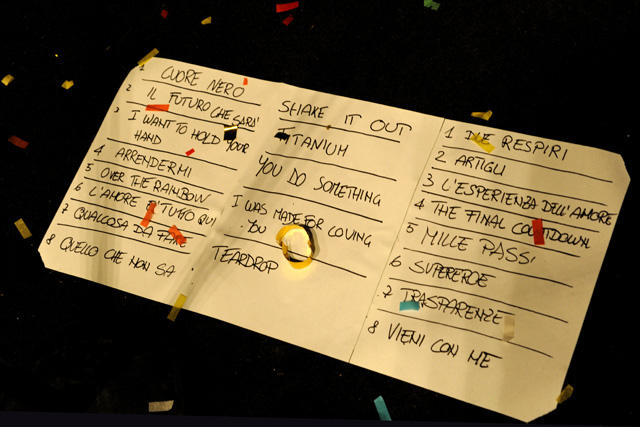 1 CUORE NERO
2 IL FUTURO CHE SARA'
3 I WANT TO HOLD YOUR
HAND
4 ARRENDERMI
5 OVER THE RAINBOW
6 L'AMORE E' TUTTO QUI
7 QUALCOSA DA FARE
8 QUELLO CHE NON SA
SHAKE IT OUT
TITANIUM
YOU DO SOMETHING
I WAS MADE FOR LOVING
YOU
TEARDROP
1 DUE RESPIRI
2 ARTIGLI
3 L'ESPERIENZA DELL'AMORE
4 THE FINAL COUNTDOWN
5 MILLE PASSI
6 SUPEREROE
7 TRASPARENZE
8 VIENI CON ME